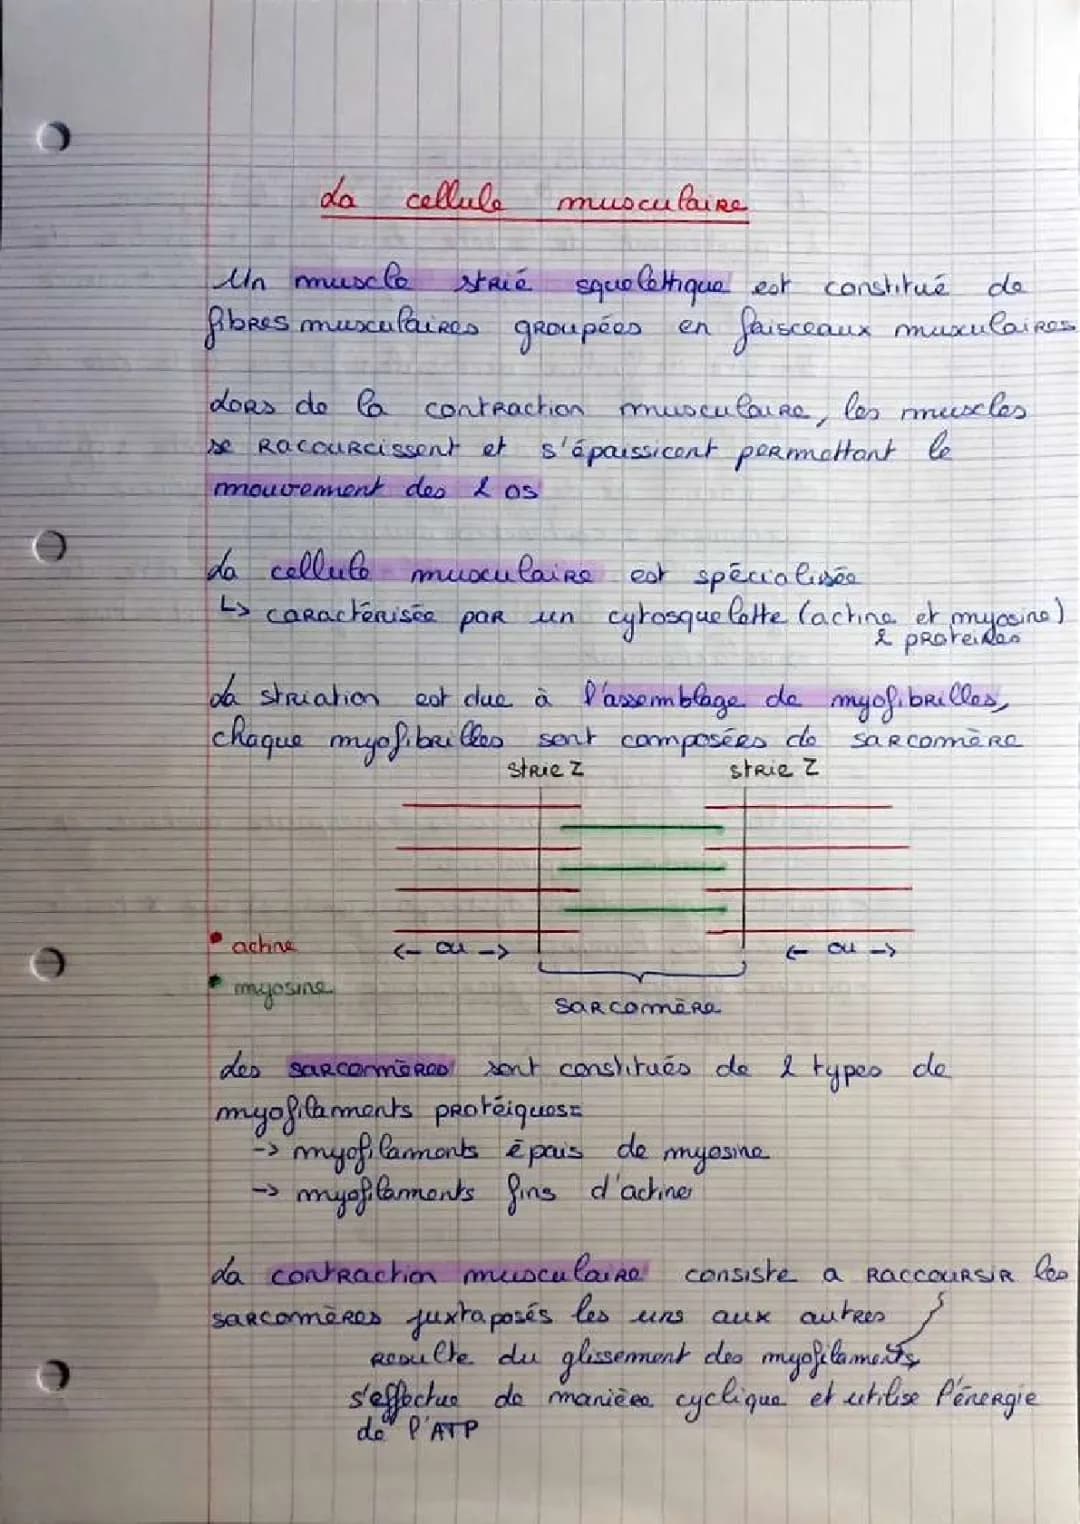 La cellule musculaire
Un muscle strié squelettique est constitué de
fibres musculaires groupées en faisceaux musculaires
Lors de la contraction musculaire, les muscles
se racourcissent et s'épaissicent permettant le
mouvement des 2 os
La cellule musculaire est spécialisée
↳ caractérisée par un cytosquelette (actine et myosine)
2 proteines
La striation est due à l'assemblage de myofibrilles,
chaque myofibrilles sont composées de sarcomère
strie Z strie Z
• actine <- ou -> <- ou ->
• myosine
sarcomère
Les sarcomères sont constitués de 2 types de
myofilaments protéiques:
-> myofilaments épais de myosine
-> myofilaments fins d'actine
La contraction musculaire consiste a raccoursir les
sarcomères juxtaposés les uns aux autres
resulte du glissement des myofilaments,
s'effectue de manière cyclique et utilise l'énergie
de l'ATP